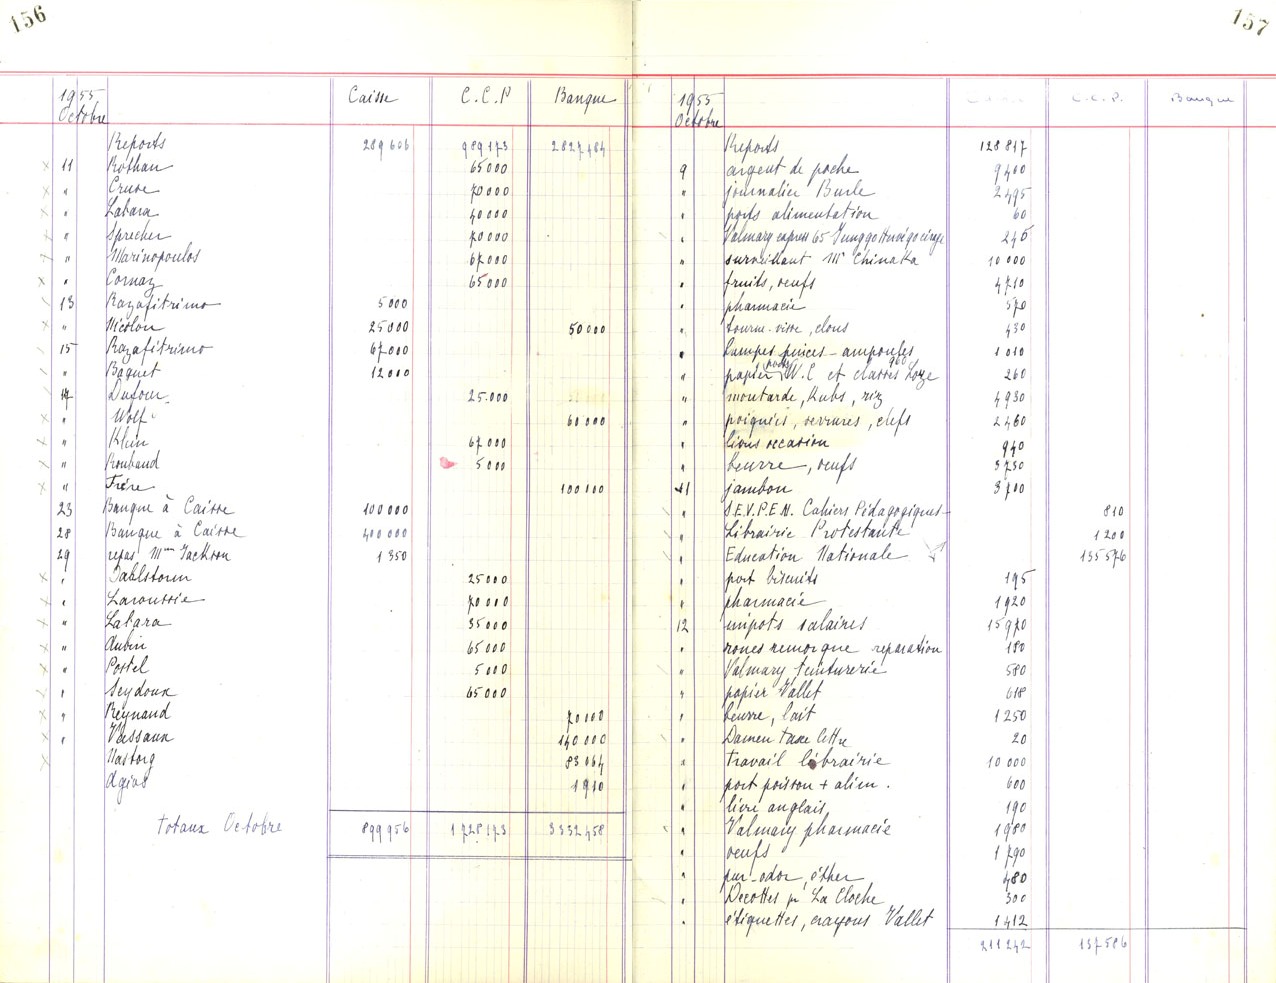 156
1955 Octobre Caisse C.C.P Banque
Reports 289 606 989 173 2827 484
11 Rothan 65000
" Cruse 70000
" Labara 40000
" Sprecher 70000
" Marinopoulos 67000
" Cornaz 65000
13 Razafitrimo 5000
" Nicolou 25000 50000
15 Razafitrimo 67000
" Baquet 12000
Dufour 25.000
" Wolf 60000
" Klein 67000
" Roubaud 5000
" Frère 100 100
23 Banque à Caisse 100000
28 Banque à Caisse 400000
29 repas Mme Jackson 1350
" Dahlstorm 25000
" Laroussie 70000
" Labara 35000
" Aubin 65000
" Postel 5000
" Seydoux 65000
" Reynaud 70100
" Vassaux 140000
Nastorg 83064
Agios 1910
totaux Octobre 899956 1728173 3332458
157
1955 Octobre C.C.P. Banque
Reports 128817
9 argent de poche 9400
" journalier Burle 2495
" ports alimentation 60
" Valmary express 65 245
" surveillant Mr Chinaka 10000
" fruits, oeufs 4710
" pharmacie 570
" tourne-visse, clous 430
" Lampes pinces - ampoules 1010
" papier W.C et classis 260
" moutarde, Kubs, riz 4930
" poignées, serrures, clefs 2460
" livres occasion 940
" beurre, oeufs 3730
11 jambon 3700
" S.E.V.P.E.N. Cahiers Pédagogiques 810
" Librairie Protestante 1200
" Education Nationale 135576
" port biscuits 195
" pharmacie 1920
12 impots salaires 15970
" roues remorque reparation 180
" Valmary teinturerie 580
" papier Vallet 618
" beurre, lait 1250
" Damen taxe lettre 20
" travail librairie 10000
" port poisson + alim. 600
" livre anglais 190
" Valmary pharmacie 1980
" oeufs 1790
" pur-odor, éther 480
" Decottes pr La Cloche 300
" étiquettes, crayons Vallet 1412
211242 137586